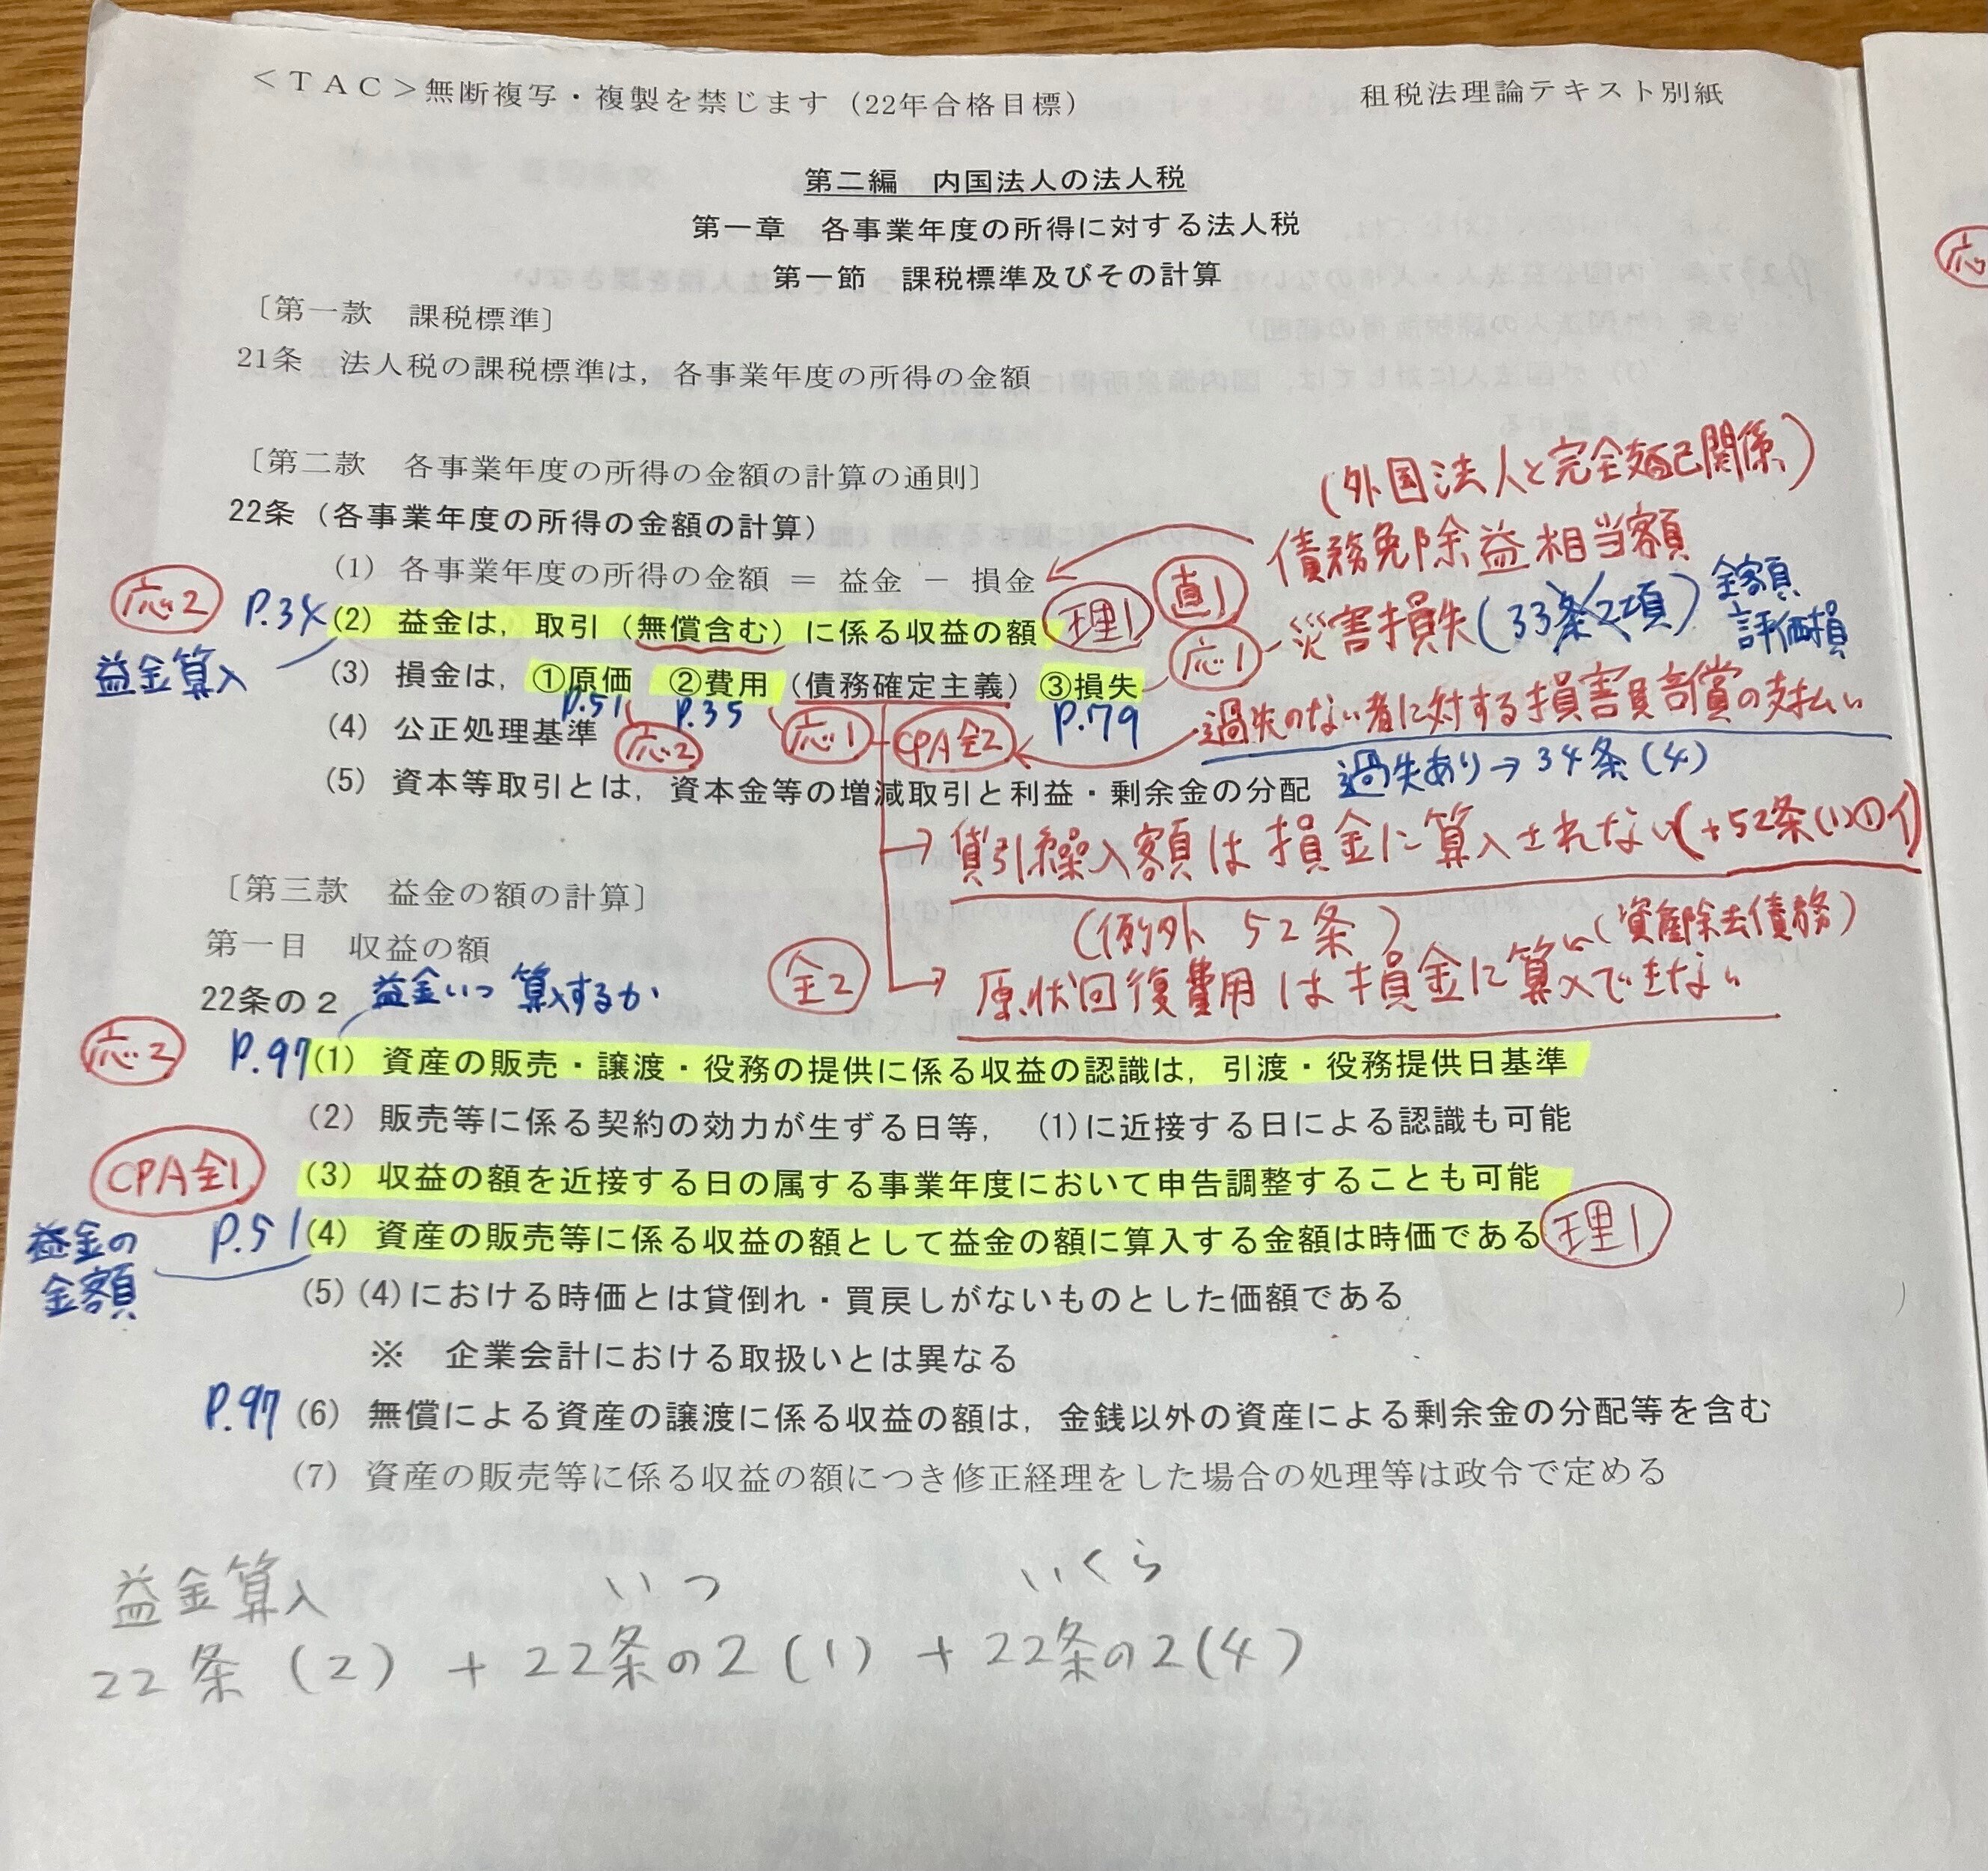 ＜ＴＡＣ＞無断複写・複製を禁じます（22年合格目標）
租税法理論テキスト別紙
第二編　内国法人の法人税
第一章　各事業年度の所得に対する法人税
第一節　課税標準及びその計算
〔第一款　課税標準〕
21条　法人税の課税標準は，各事業年度の所得の金額
〔第二款　各事業年度の所得の金額の計算の通則〕
(外国法人と完全支配関係)
22条（各事業年度の所得の金額の計算）
債務免除益相当額
(1) 各事業年度の所得の金額 ＝ 益金 － 損金
応2 P.34 (2) 益金は，取引（無償含む）に係る収益の額 理1 直1
益金算入
応1 災害損失(33条2項) 全額評価損
(3) 損金は，①原価 ②費用（債務確定主義）③損失
P.51 P.35 P.79
過失のない者に対する損害賠償の支払い
(4) 公正処理基準 応2 応1 CPA全2
過失あり→34条(4)
(5) 資本等取引とは，資本金等の増減取引と利益・剰余金の分配
→貸引繰入額は損金に算入されない(+52条(1)①イ)
(例外 52条)
〔第三款　益金の額の計算〕
第一目　収益の額
全2 →原状回復費用は損金に算入できない
(資産除去債務)
22条の２
益金いつ算入するか
応2 P.97 (1) 資産の販売・譲渡・役務の提供に係る収益の認識は，引渡・役務提供日基準
(2) 販売等に係る契約の効力が生ずる日等，(1)に近接する日による認識も可能
CPA全1 (3) 収益の額を近接する日の属する事業年度において申告調整することも可能
益金の金額 P.51 (4) 資産の販売等に係る収益の額として益金の額に算入する金額は時価である 理1
(5) (4)における時価とは貸倒れ・買戻しがないものとした価額である
※　企業会計における取扱いとは異なる
P.97 (6) 無償による資産の譲渡に係る収益の額は，金銭以外の資産による剰余金の分配等を含む
(7) 資産の販売等に係る収益の額につき修正経理をした場合の処理等は政令で定める
益金算入 いつ いくら
22条(2) + 22条の2(1) + 22条の2(4)
応